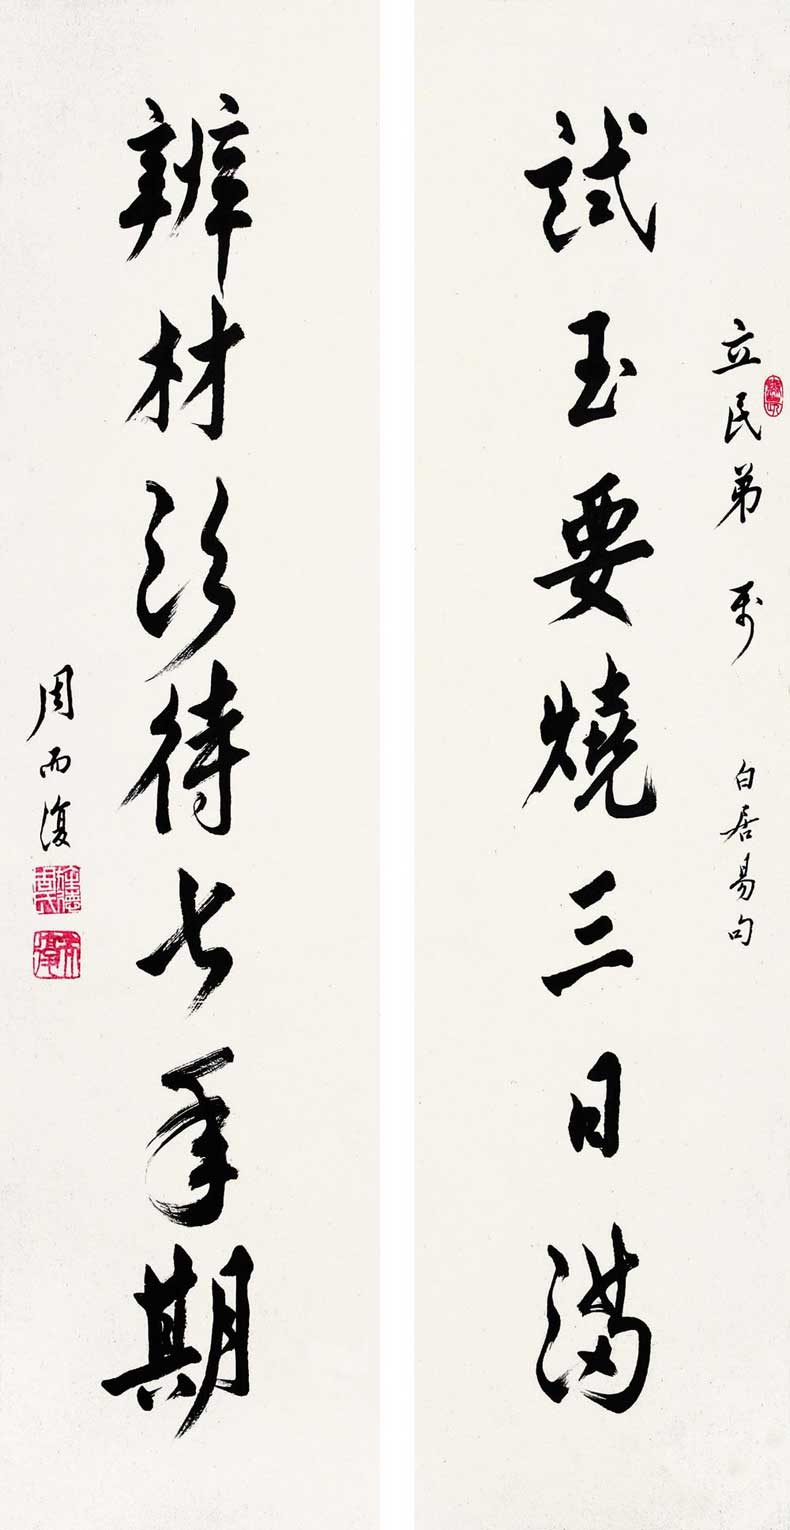 立民弟 属
白居易句
試玉要燒三日滿
辨材須待七年期
周而復
而復